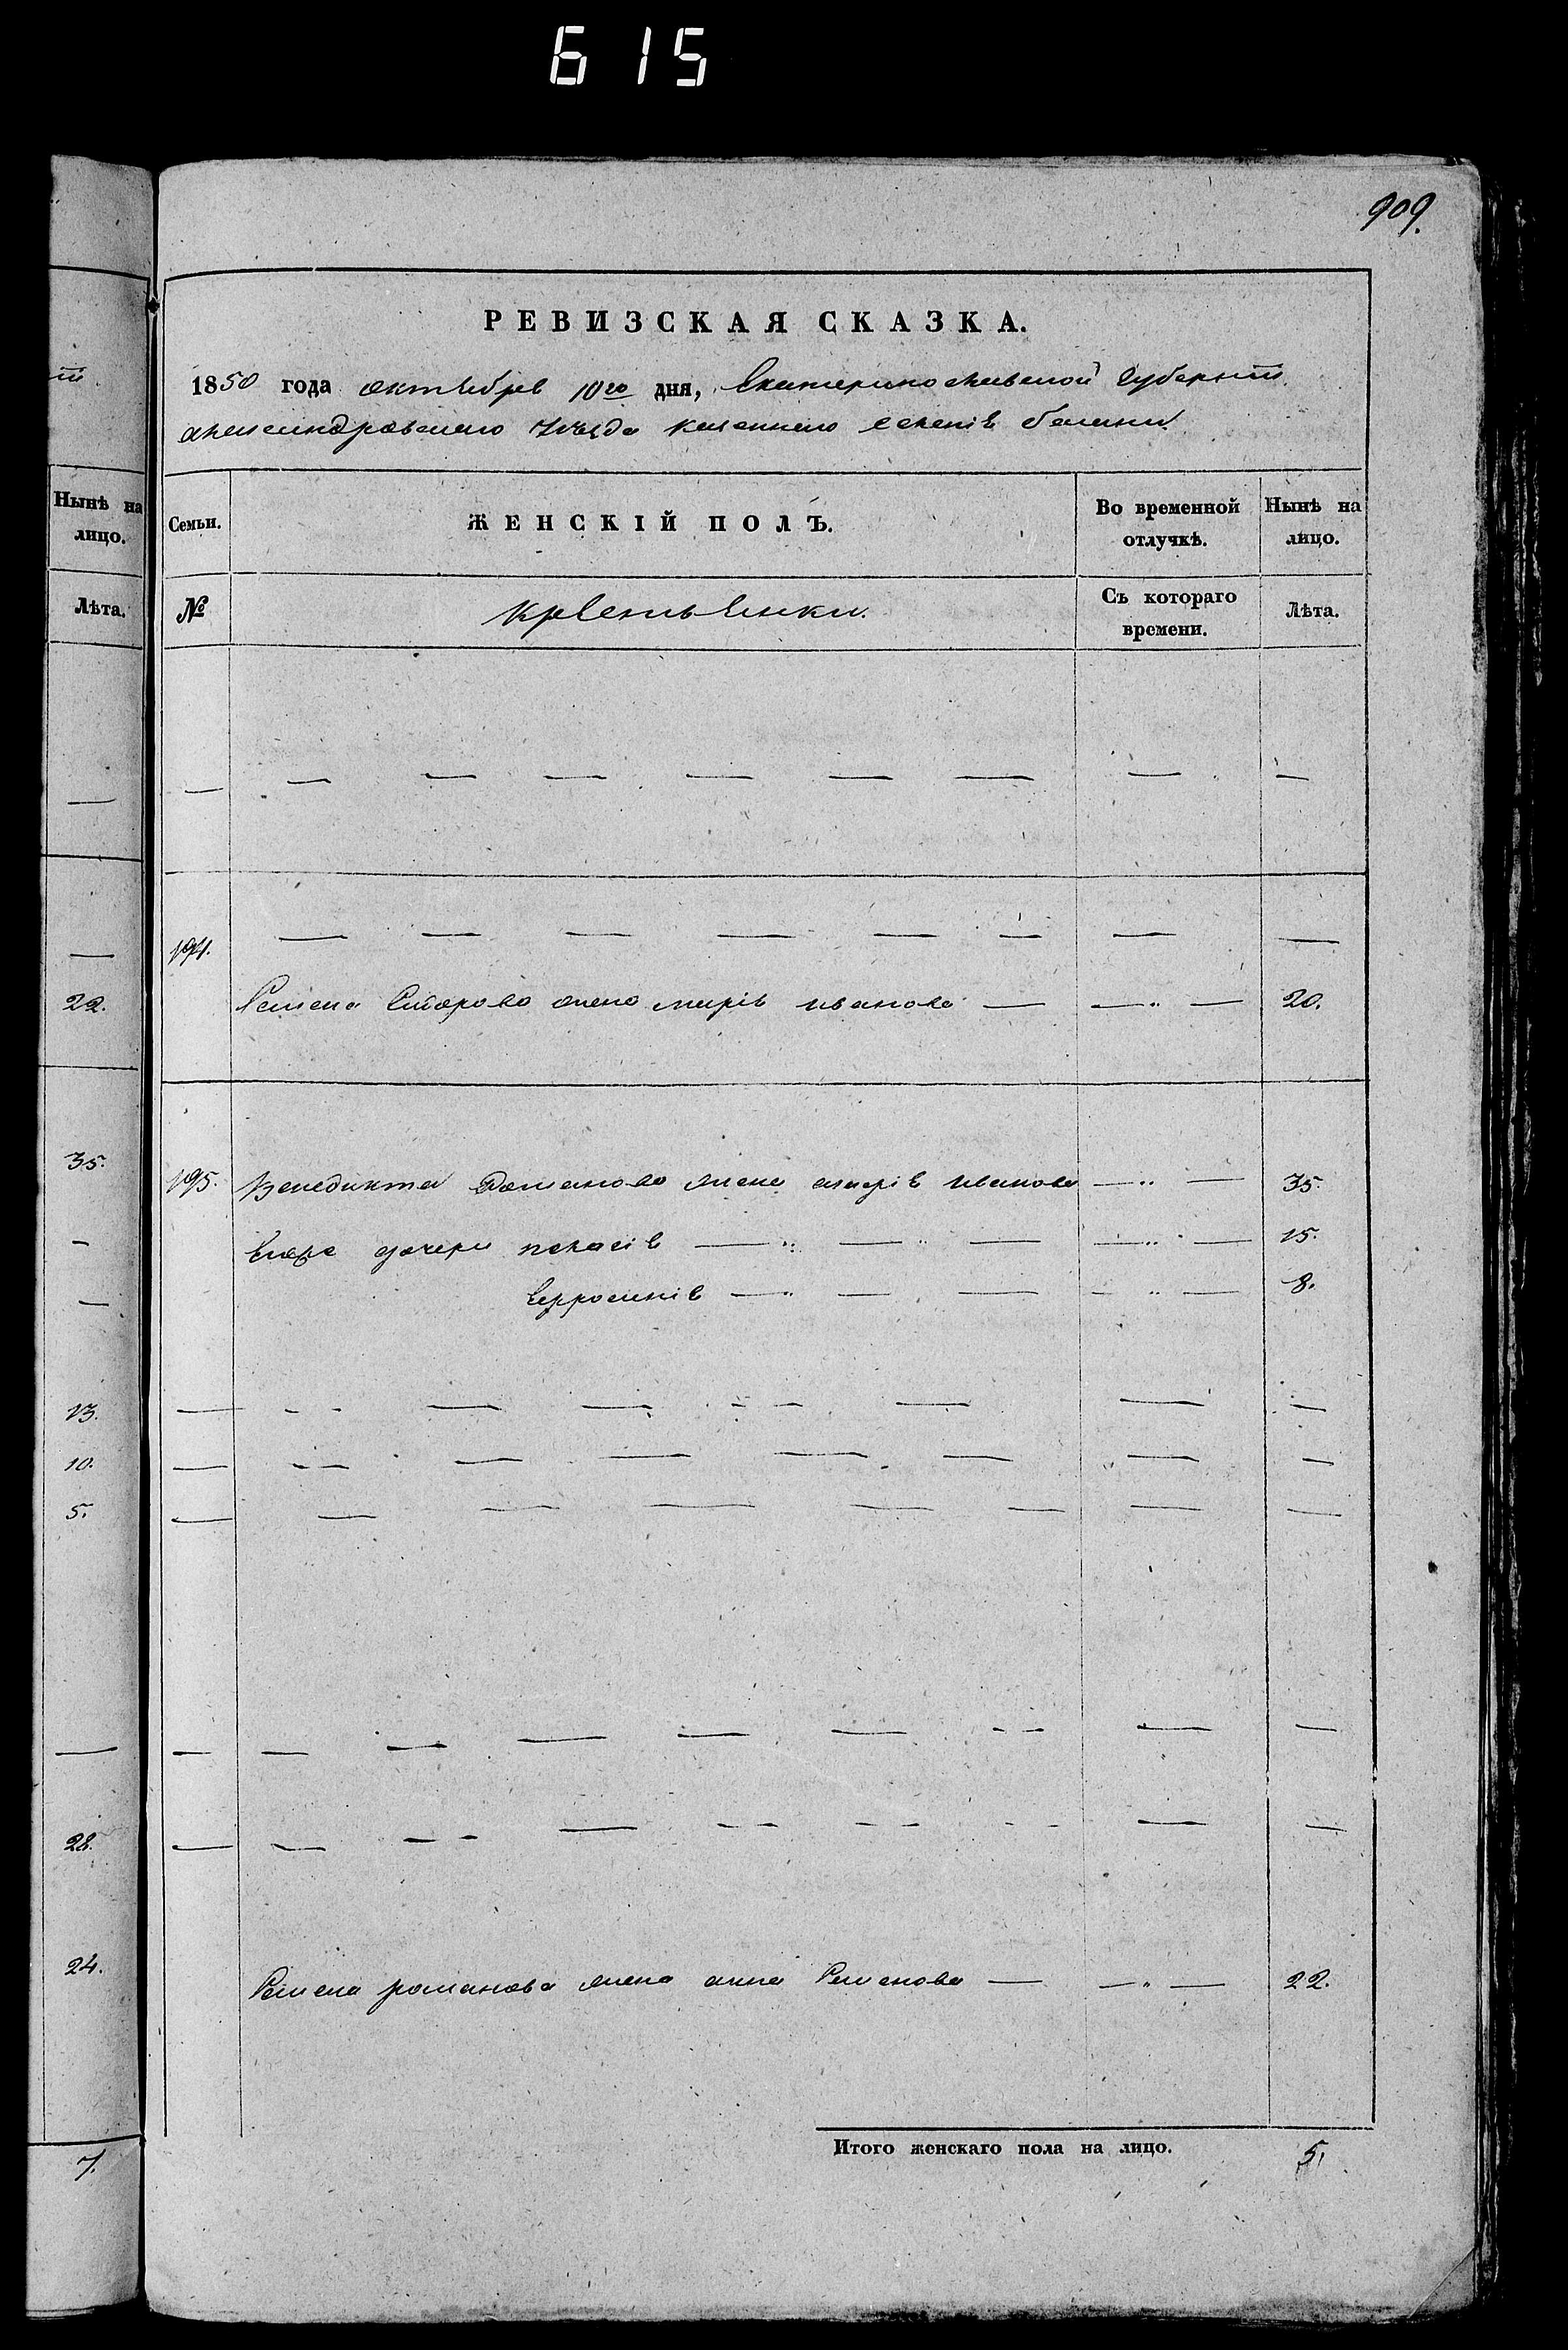 615
909.
РЕВИЗСКАЯ СКАЗКА.
1850 года октября 10го дня, Екатеринославской Губернии
александровского Уезда казенного селения
Нынѣ на лицо.
Лѣта.
22.
35.
13.
10.
5.
28.
24.
7.
Семьи.
ЖЕНСКІЙ ПОЛЪ.
Во временной отлучкѣ.
Нынѣ на лицо.
№
крестьянки.
Съ котораго времени.
Лѣта.
— — — — — — — — —
194. — — — — — — — —
Семена жена марія иванова — — „ — 20.
195. Венедикта жена марія иванова — „ — 35.
Его дочери пелагія — „ — „ — — „ — 15.
Ефросинія — „ — — — „ — 8.
Семена романова жена анна Семенова — — „ — 22.
Итого женскаго пола на лицо. 5.